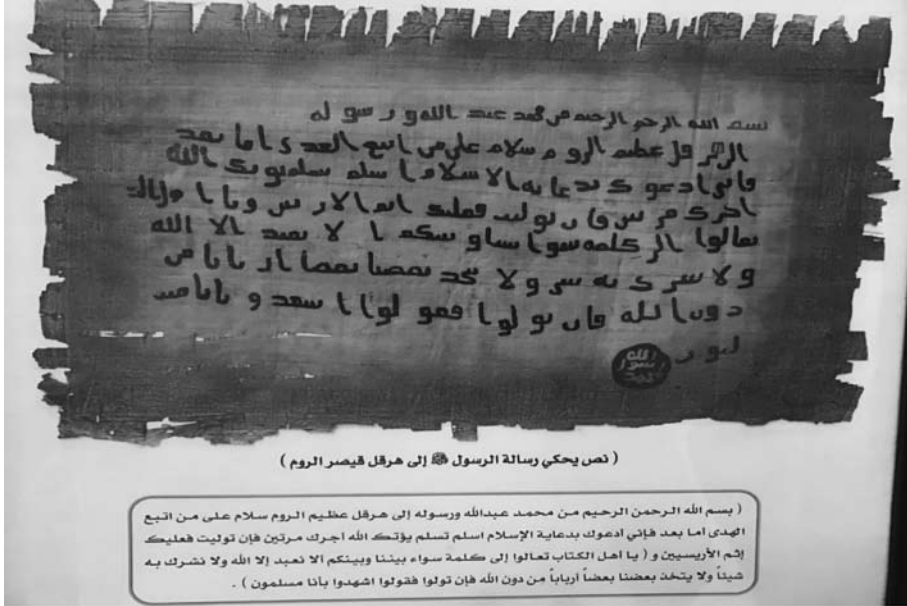 بسم الله الرحمن الرحيم من محمد عبد الله و رسوله
الى هرقل عظيم الروم سلام على من اتبع الهدى اما بعد
فانى ادعوك بدعاية الاسلام اسلم تسلم يوتك الله
اجرك مرتين فان توليت فعليك اثم الاريسين ويا اهل الكتاب
تعالوا الى كلمة سوا بيننا وبينكم ا لا نعبد الا الله
ولا نشرك به شيا ولا يتخذ بعضنا بعضا اربابا من
دون الله فان تولوا فقولوا اشهدوا بانا مسلمون
الله
رسول
محمد
( نص يحكي رسالة الرسول ﷺ إلى هرقل قيصر الروم )
( بسم الله الرحمن الرحيم من محمد عبدالله ورسوله إلى هرقل عظيم الروم سلام على من اتبع
الهدى أما بعد فإني أدعوك بدعاية الإسلام اسلم تسلم يؤتك الله أجرك مرتين فإن توليت فعليك
إثم الأريسيين و ( يا أهل الكتاب تعالوا إلى كلمة سواء بيننا وبينكم ألا نعبد إلا الله ولا نشرك به
شيئاً ولا يتخذ بعضنا بعضاً أرباباً من دون الله فإن تولوا فقولوا اشهدوا بأنا مسلمون ) .